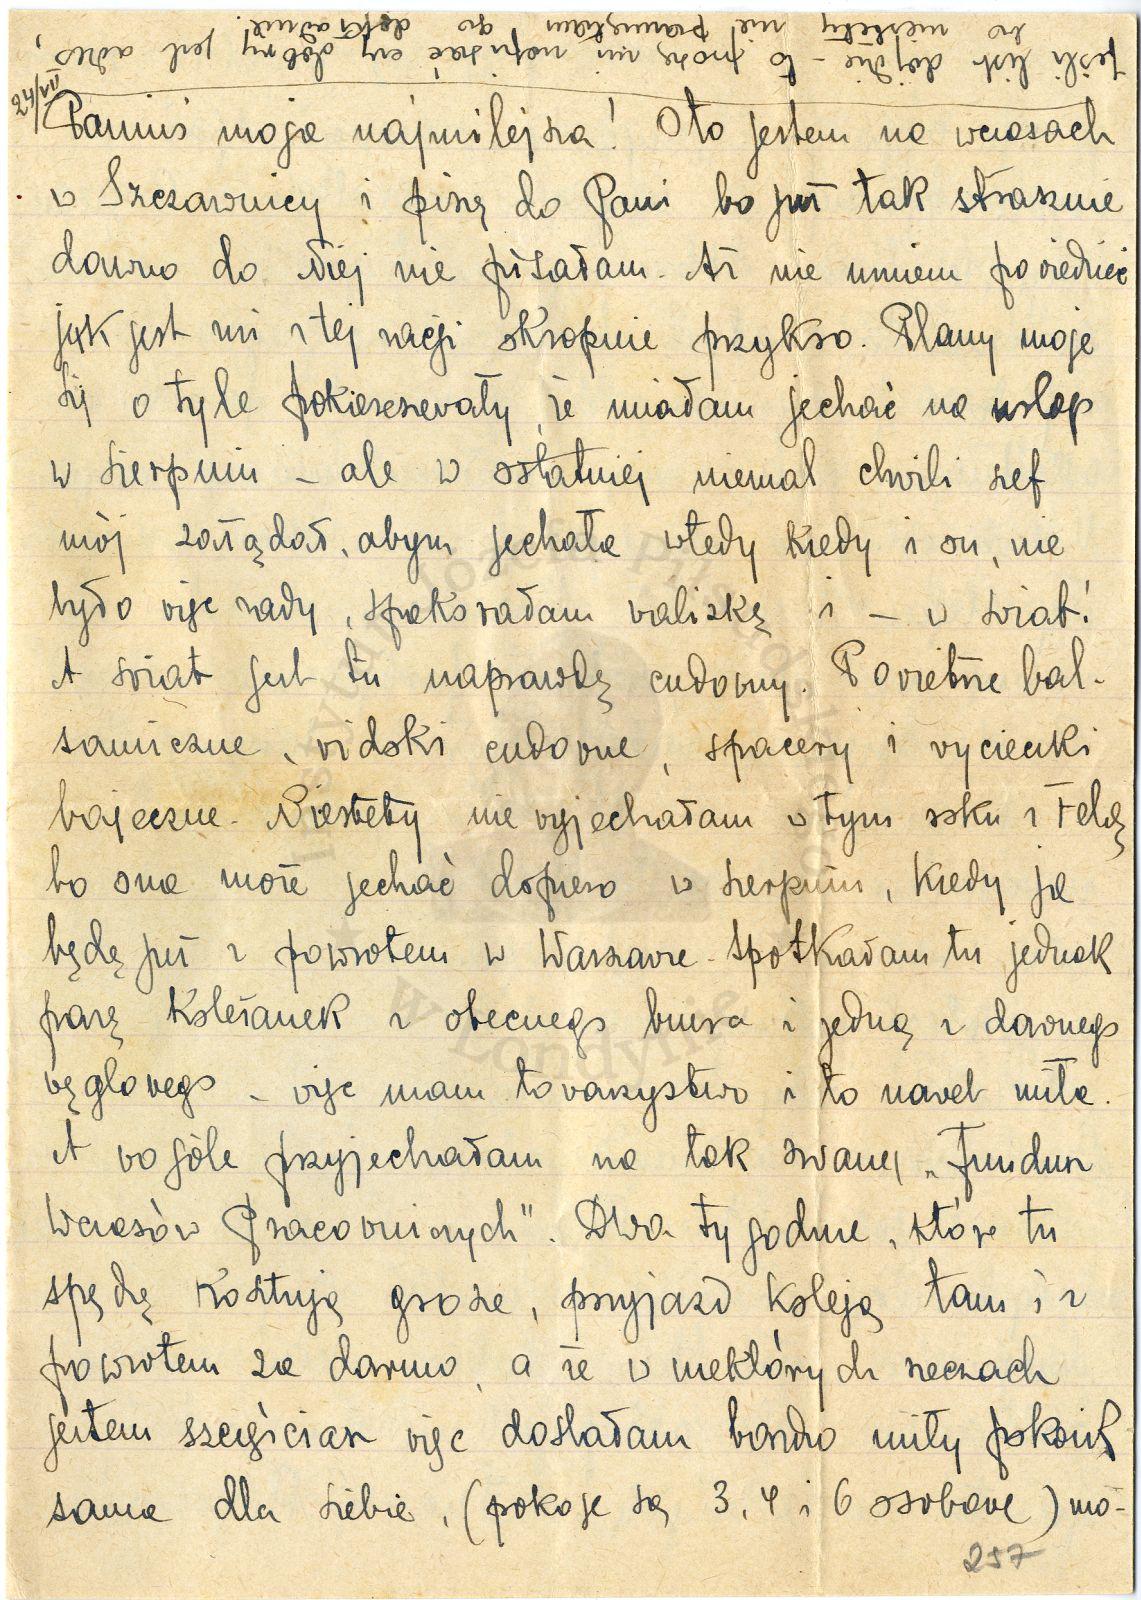 Jeśli list dojdzie – to proszę mi napisać czy dobry jest adres,
bo niestety nie pamiętam go dokładnie.
Paniuś moja najmilejsza! Oto jestem na wczasach
w Szczawnicy i piszę do Pani bo już tak strasznie
dawno do Niej nie pisałam. Aż nie umiem powiedzieć
jak jest mi z tej racji okropnie przykro. Plany moje
się o tyle pokiereszowały, że miałam jechać na urlop
w sierpniu – ale w ostatniej niemal chwili szef
mój zażądał, abym jechała wtedy kiedy i on, nie
było więc rady, spakowałam walizkę i – w świat!
A świat jest tu naprawdę cudowny. Powietrze bal-
samiczne, widoki cudowne, spacery i wycieczki
bajeczne. Niestety nie wyjechałam w tym roku z Felą
bo ona może jechać dopiero w sierpniu, kiedy ja
będę już z powrotem w Warszawie. Spotkałam tu jednak
parę koleżanek z obecnego biura i jedną z dawnego
węglowego – więc mam towarzystwo i to nawet miłe.
A wogóle przyjechałam na tak zwany „Fundusz
Wczasów Pracowniczych". Dwa tygodnie, które tu
spędzę kosztują grosze, przyjazd koleją tam i z
powrotem za darmo, a że w niektórych rzeczach
jestem szczęściarz więc dostałam bardzo miły pokoik
sama dla siebie, (pokoje są 3, 4 i 6 osobowe) mó-
257
Instytut Józefa Piłsudskiego
w Londynie